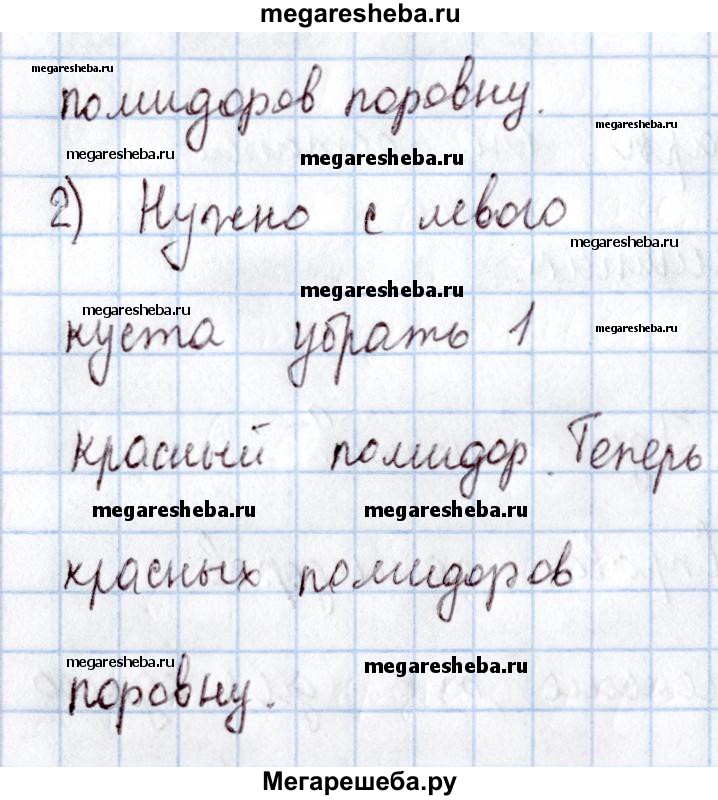 megaresheba.ru
megaresheba.ru
помидоров поровну.
megaresheba.ru
megaresheba.ru megaresheba.ru
2) Нужно с левого
megaresheba.ru
megaresheba.ru
megaresheba.ru
куста убрать 1
megaresheba.ru
красный помидор. Теперь
megaresheba.ru megaresheba.ru
красных помидоров
megaresheba.ru megaresheba.ru
поровну.
Мегарешеба.ру